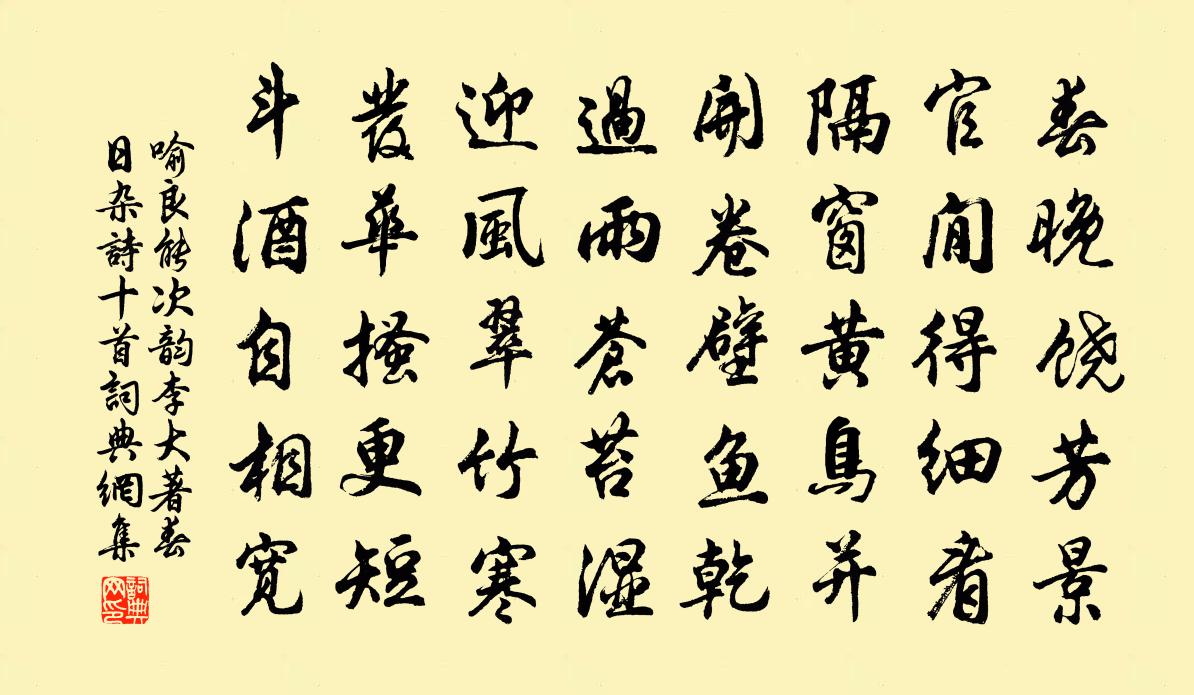 春晚饶芳景
官閒得细看
隔窗黄鳥并
開卷壁鱼乾
過雨苍苔湿
迎風翠竹寒
發華搔更短
斗酒自相寛
喻良能次韵李大著春
日杂詩十首詞典網集
詞典網印